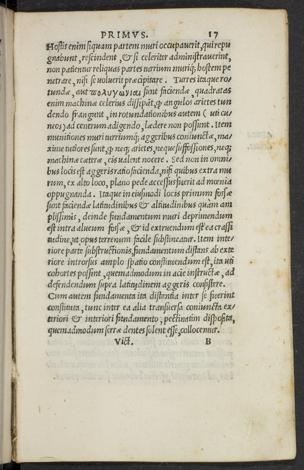 PRIMVS. 17
Hostis enim siquam partem muri occupauerit, qui repu
gnabunt, rescindent, & si celeriter administrauerint,
non patientur reliquas partes turrium muriq; hostem pe
netrare, nisi se uoluerit præcipitare. Turres itaque ro-
tundæ, aut πολυγωνιαι sunt faciendæ, quadratas
enim machinæ celerius dissipāt, q̃ angulos arietes tun
dendo frangunt, in rotundationibus autem (uti cu
neos) ad centrum adigendo, lædere non possunt. Item
munitiones muri turriumq; aggeribus coniunctæ, ma
xime tutiores sunt, q̃ neq; arietes, neque suffossiones, neq;
machinæ cæteræ, eis ualent nocere. Sed non in omni-
bus locis est aggeris ratio facienda, nisi quibus extra mu
rum, ex alto loco, plano pede accessus fuerit ad mœnia
oppugnanda. Itaque in eiusmodi locis primum fossæ
sunt faciendæ latitudinibus & altitudinibus quàm am
plissimis, deinde fundamentum muri deprimendum
est intra alueum fossæ, & id extruendum est ea crassi
tudine, ut opus terrenum facile sustineatur. Item inte
riore parte substructionis, fundamentum distans ab exte
riore introrsus amplo spatio constituendum est, ita uti
cohortes possint, quemadmodum in acie instructæ, ad
defendendum supra latitudinem aggeris consistere.
Cum autem fundamenta ita distantia inter se fuerint
constituta, tunc inter ea alia transuersa coniuncta ex-
teriori & interiori fundamento, pectinatim disposita,
quemadmodum serræ dentes solent esse, collocentur.
Vict. B